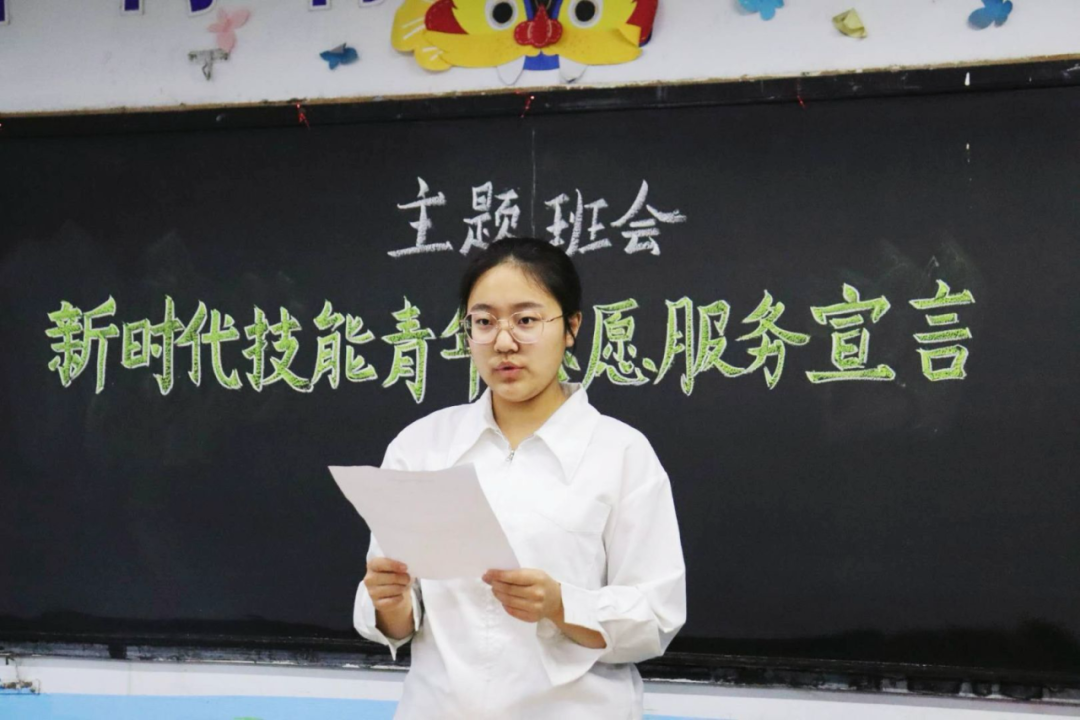 主题班会
新时代技能青年志愿服务宣言